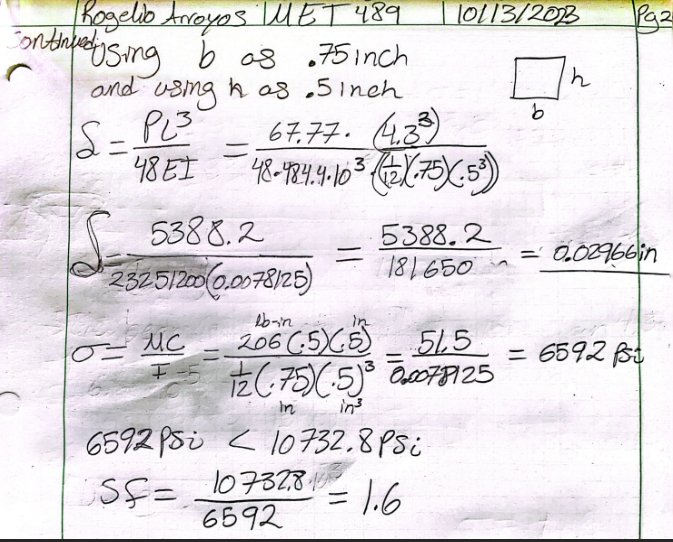 Rogelio Arroyos MET 489 10/13/2023 Pg2
Continued
Using b as .75 inch
and using h as .5 inch
h
b
δ = PL³/48EI = 67.77 · (4.3³)/48·484.4·10³·((1/12)(.75)(.5³))
δ = 5388.2/23251200(0.0078125) = 5388.2/181650 = 0.02966in
σ = MC/I = 206(.5)(.5)/(1/12)(.75)(.5)³ = 51.5/0.0078125 = 6592 psi
lb-in in
in in³
6592 PSi < 10732.8 PSi
SF = 10732.8/6592 = 1.6